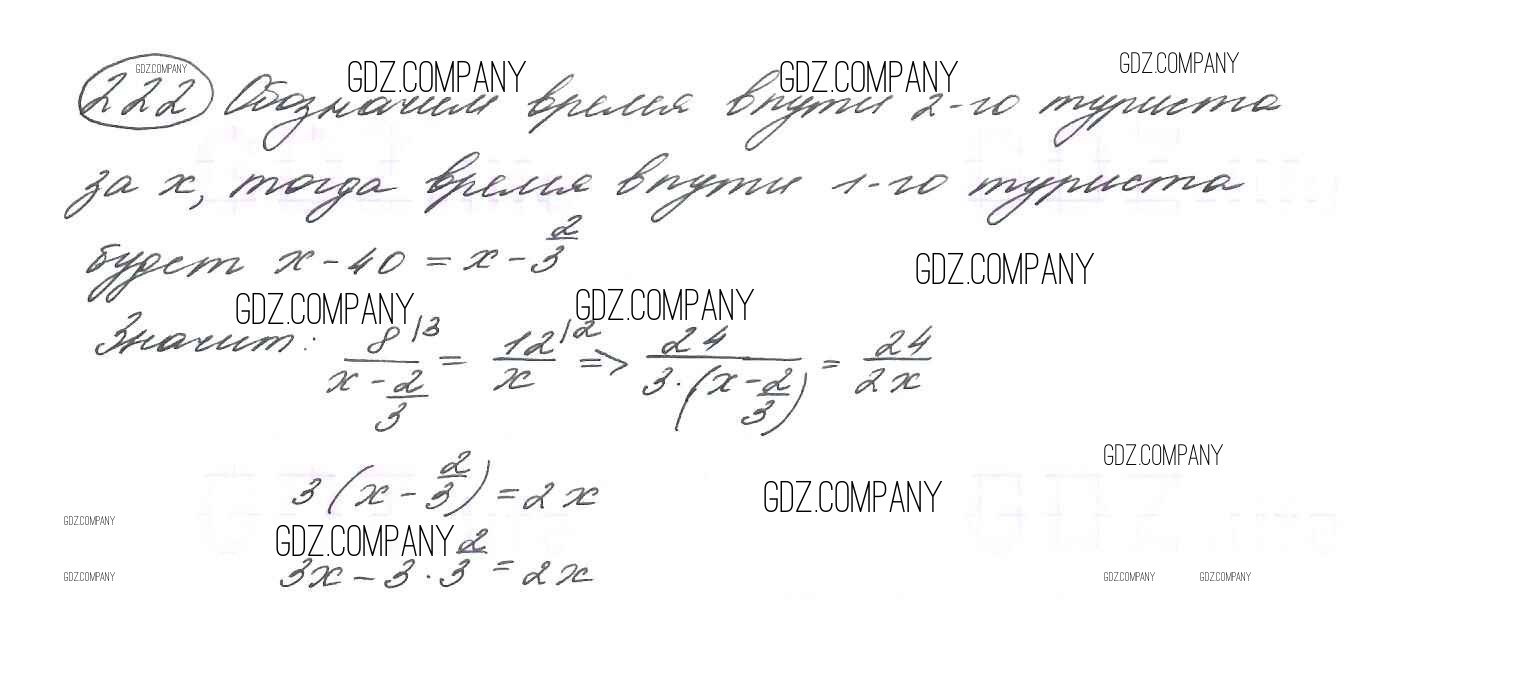 222 Обозначим время в пути 2-го туриста
GDZ.COMPANY GDZ.COMPANY GDZ.COMPANY GDZ.COMPANY
за x, тогда время в пути 1-го туриста
будет x - 40 = x - 2/3
GDZ.COMPANY
GDZ.COMPANY GDZ.COMPANY
Значит: 8|3 / (x - 2/3) = 12|2 / x => 24 / (3·(x - 2/3)) = 24 / 2x
GDZ.COMPANY
3(x - 2/3) = 2x
GDZ.COMPANY
GDZ.COMPANY
GDZ.COMPANY
3x - 3 · 2/3 = 2x
GDZ.COMPANY GDZ.COMPANY GDZ.COMPANY